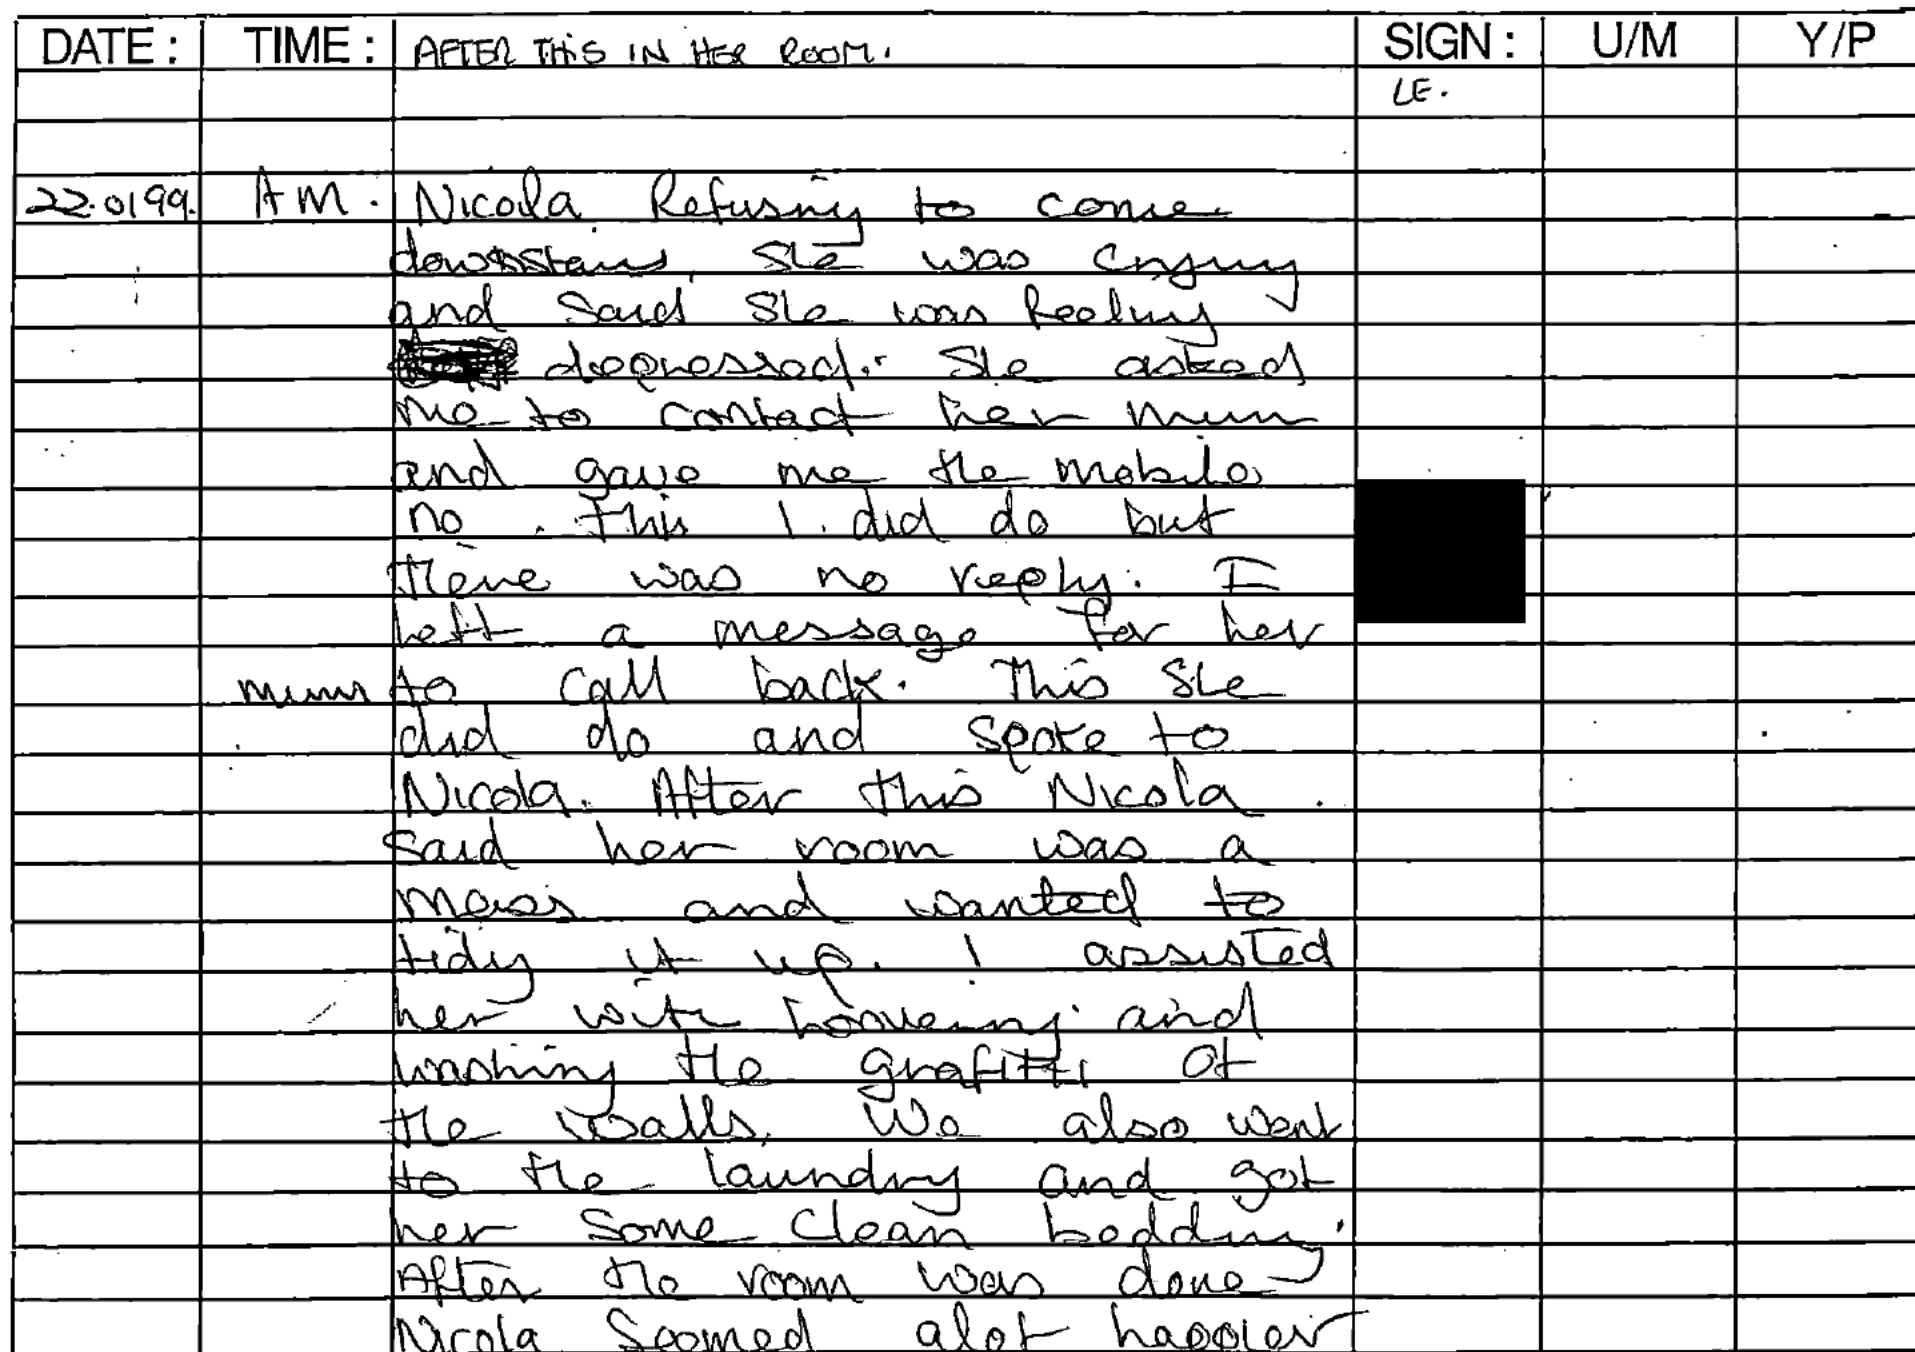 DATE : TIME : AFTER THIS IN HER ROOM. SIGN : U/M Y/P
LE.
22.0199. AM. Nicola Refusing to come
downstairs, She was crying
and said She was feeling
depressed. She asked
me to contact her mum
and gave me the mobile
no. This I did do but
there was no reply. I
left a message for her
mum to call back. This She
did do and spoke to
Nicola. After this Nicola
said her room was a
mess and wanted to
tidy it up. I assisted
her with hoovering and
washing the grafitti of
the walls. We also went
to the laundry and got
her some clean bedding.
After the room was done
Nicola seemed alot happier